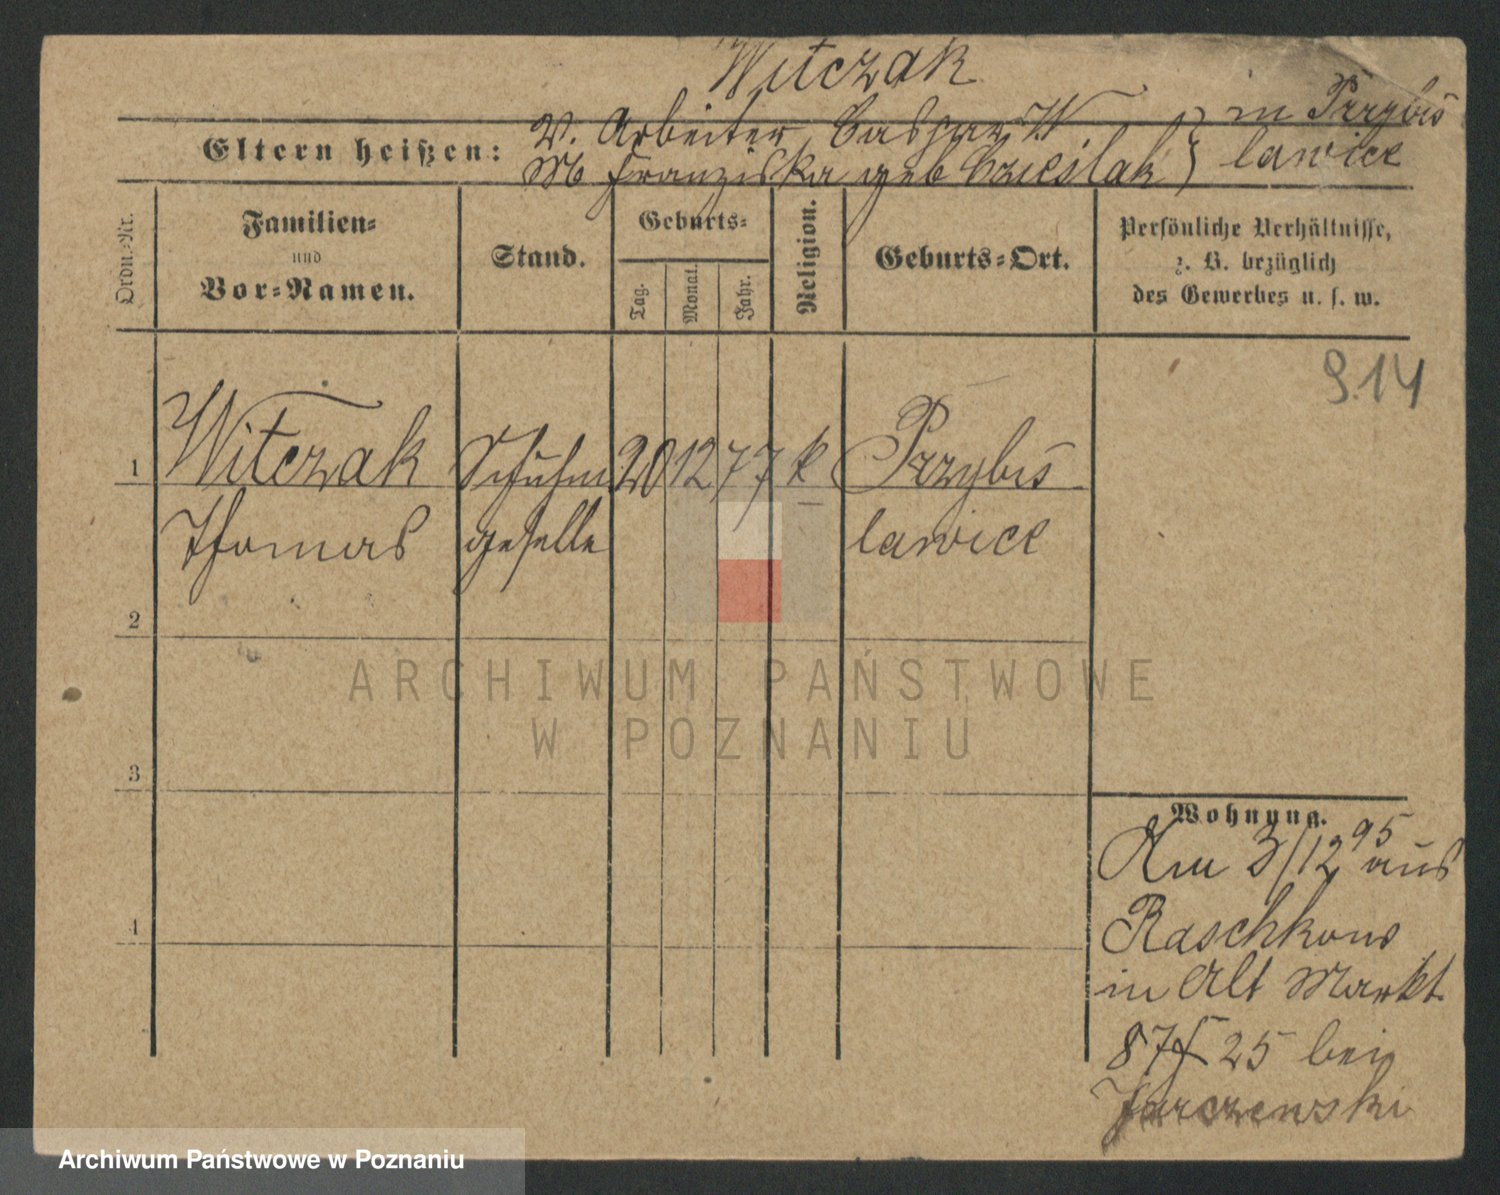 Witczak
V. Arbeiter Caspar W } in Przybis
Eltern heißen:
M Franziska geb Czieslak } lawice
Ordn.-Nr.
Familien-
und
Vor-Namen.
Stand.
Geburts-
Tag.
Monat.
Jahr.
Religion.
Geburts-Ort.
Persönliche Verhältnisse,
z. B. bezüglich
des Gewerbes u. s. w.
914
1 Witczak Schuhm 20 12 77 k Przybis
Thomas geselle lawice
2
3
4
Wohnung.
Am 3/12 95 aus
Raschkow
in Alt Markt
87 25 bei
Jarczewski
ARCHIWUM PAŃSTWOWE
W POZNANIU
Archiwum Państwowe w Poznaniu